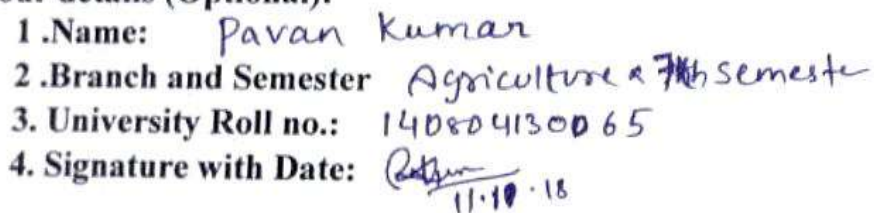 details (Optional):
1 .Name: Pavan Kumar
2 .Branch and Semester Agriculture & 7th Semeste
3. University Roll no.: 140804130065
4. Signature with Date:
11.10.18